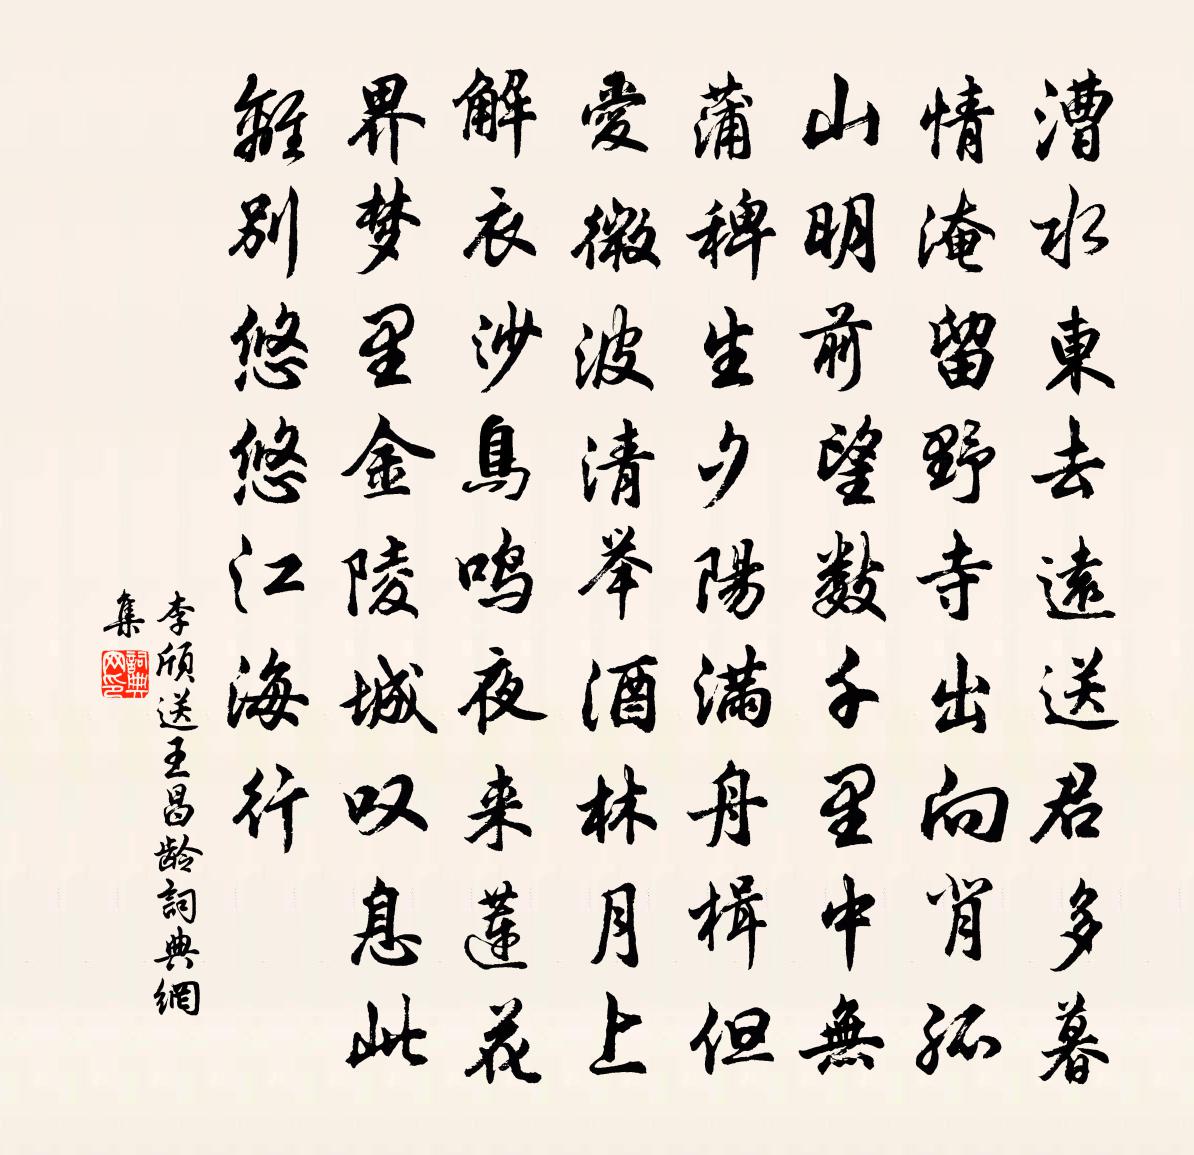 漕水東去遠送君多暮
情淹留野寺出向背孤
山明前望數千里中無
蒲稗生夕陽滿舟楫但
愛微波清举酒林月上
解衣沙鳥鸣夜来蓮花
界梦里金陵城叹息此
離別悠悠江海行
李颀送王昌龄詞典網
集
詞典
网印